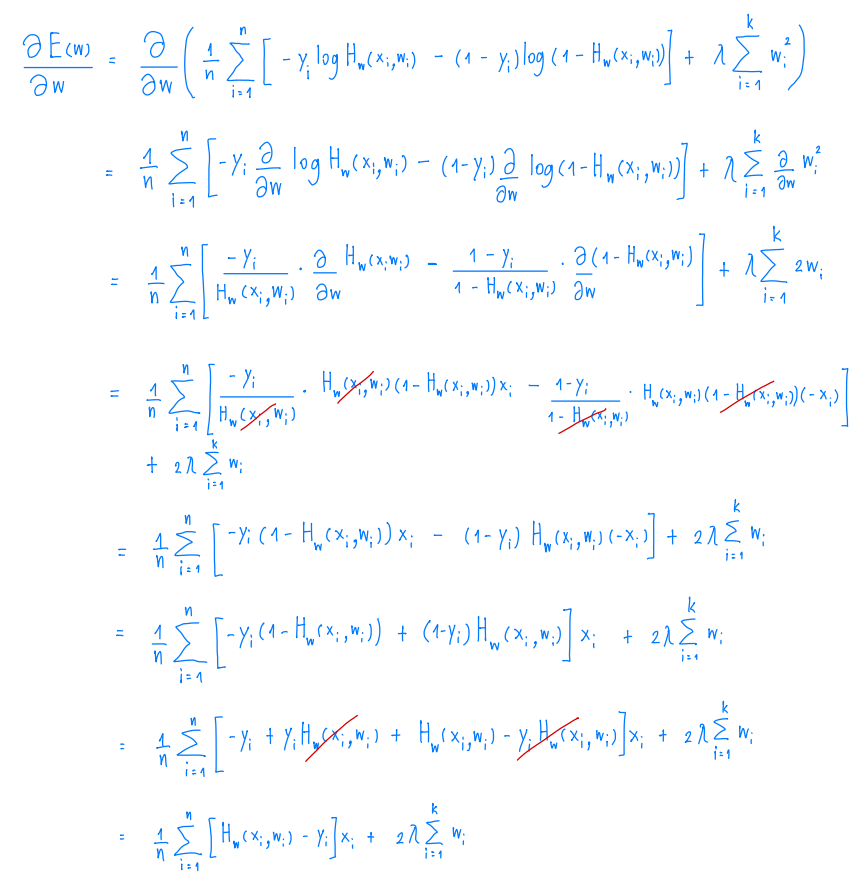 ∂E(w)/∂w = ∂/∂w ( 1/n ∑_{i=1}^{n} [ -y_i log H_w(x_i,w_i) - (1 - y_i) log (1 - H_w(x_i,w_i)) ] + λ ∑_{i=1}^{k} w_i^2 )
= 1/n ∑_{i=1}^{n} [ -y_i ∂/∂w log H_w(x_i,w_i) - (1-y_i) ∂/∂w log(1-H_w(x_i,w_i)) ] + λ ∑_{i=1}^{k} ∂/∂w w_i^2
= 1/n ∑_{i=1}^{n} [ -y_i/H_w(x_i,w_i) · ∂/∂w H_w(x_i w_i) - (1 - y_i)/(1 - H_w(x_i,w_i)) · ∂/∂w (1-H_w(x_i,w_i)) ] + λ ∑_{i=1}^{k} 2w_i
= 1/n ∑_{i=1}^{n} [ -y_i/H_w(x_i,w_i) · H_w(x_i,w_i)(1-H_w(x_i,w_i))x_i - (1-y_i)/(1-H_w(x_i,w_i)) · H_w(x_i,w_i)(1-H_w(x_i,w_i))(-x_i) ]
+ 2λ ∑_{i=1}^{k} w_i
= 1/n ∑_{i=1}^{n} [ -y_i(1-H_w(x_i,w_i))x_i - (1-y_i) H_w(x_i,w_i)(-x_i) ] + 2λ ∑_{i=1}^{k} w_i
= 1/n ∑_{i=1}^{n} [ -y_i(1-H_w(x_i,w_i)) + (1-y_i)H_w(x_i,w_i) ] x_i + 2λ ∑_{i=1}^{k} w_i
= 1/n ∑_{i=1}^{n} [ -y_i + y_i H_w(x_i,w_i) + H_w(x_i,w_i) - y_i H_w(x_i,w_i) ] x_i + 2λ ∑_{i=1}^{k} w_i
= 1/n ∑_{i=1}^{n} [ H_w(x_i,w_i) - y_i ] x_i + 2λ ∑_{i=1}^{k} w_i